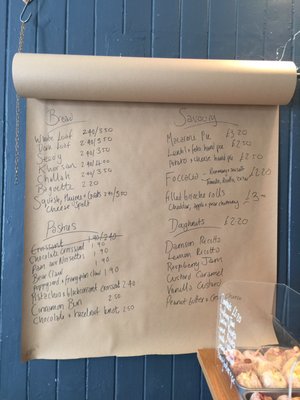 Bread
White Loaf 2.40/3.50
Dark Loaf 2.40/3.50
Stecoy 2.40/3.50
Khorasan 2.40/4.00
Challah 3.50
Baguette 2.20
Squash, & 2.40/3.50
Cheese Spelt
Pastries
Croissant 1.40/2.40
Chocolate croissant 1.90
Pain aux Raisins 1.90
Bear Claw 1.90
& Frangipan claw 1.90
Pistachio & blackcurrant croissant 2.40
Cinnamon Bun 2.50
Chocolate & hazelnut knot 2.50
Savoury
Macaroni Pie £3.20
Lentil & feta hand pie £2.50
Potato & cheese hand pie £2.50
Focaccia - Rosemary sea salt £2.20
Tomato,
filled brioche rolls
Cheddar, apple & pear chutney £3-
Doughnuts £2.20
Damson Ricotta
Lemon Ricotta
Raspberry Jam
Custard Caramel
Vanilla Custard
Peanut butter &